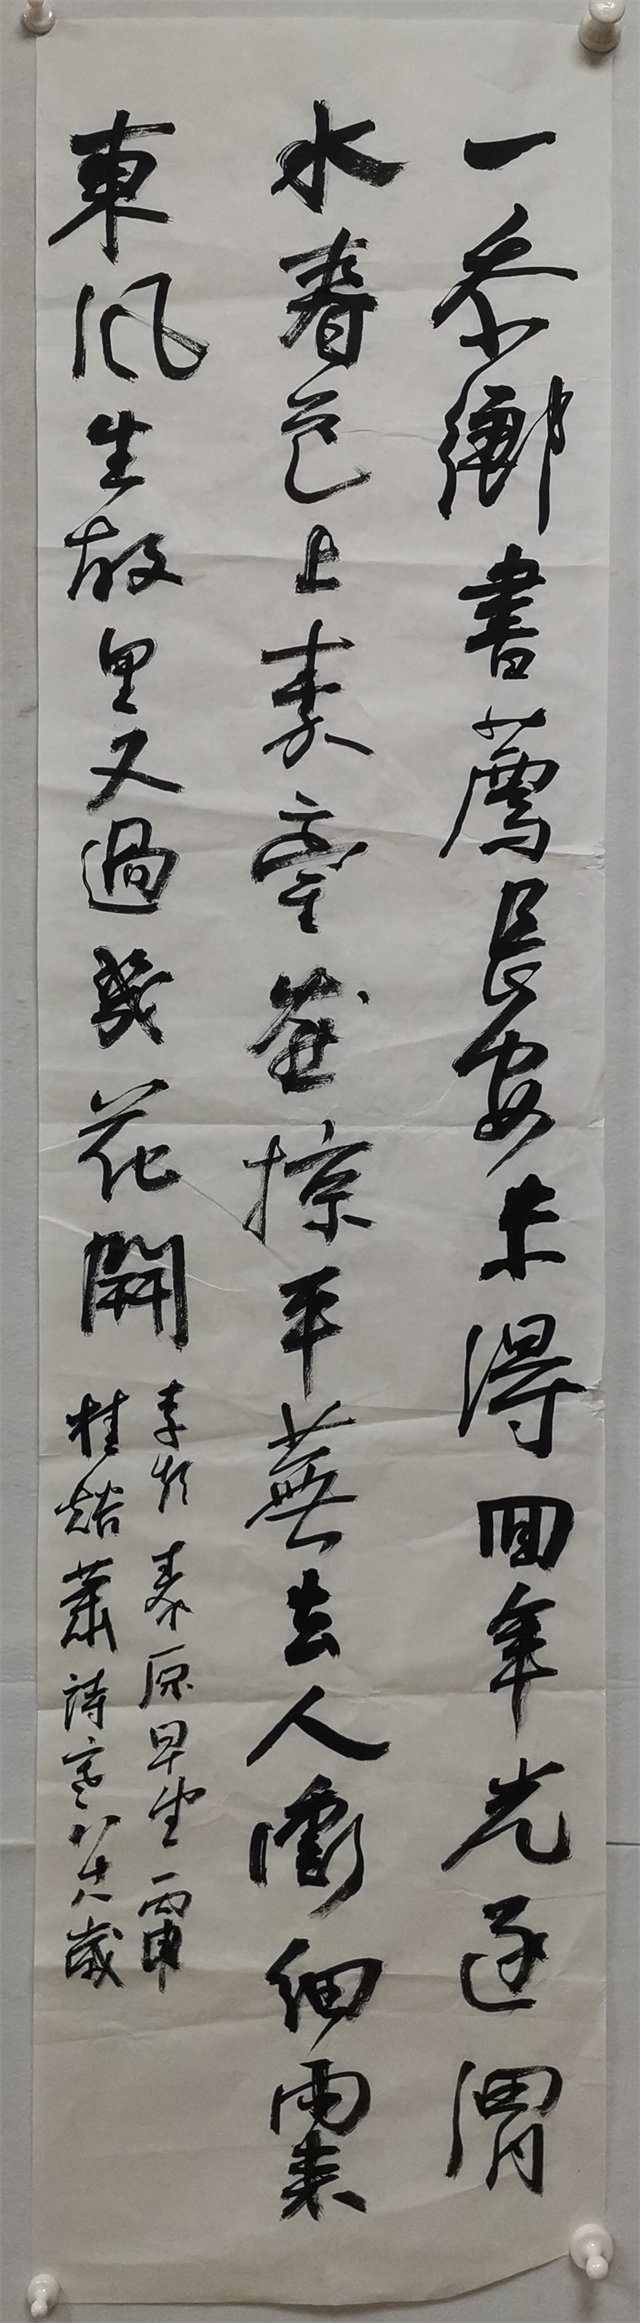 一忝鄉書薦長安未得回年光逐渭
水春色上秦臺燕掠平蕪去人衝細雨來
東風生故里又過幾花開
李頻秦原早望丙申
桂蕭詩八歲